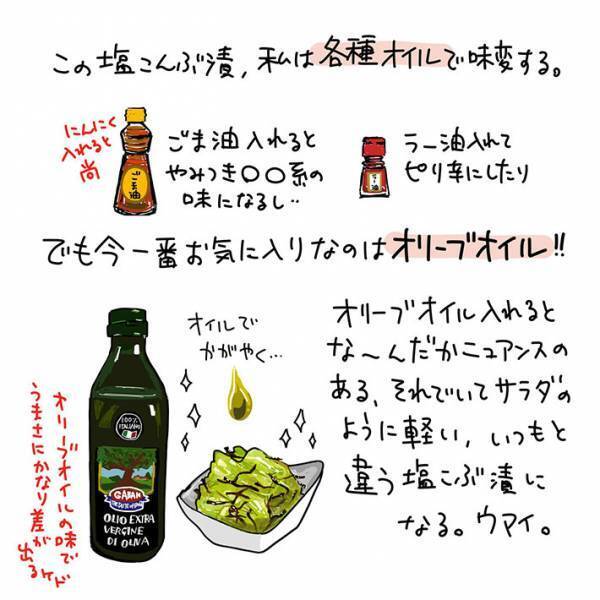 この塩こんぶ漬，私は各種オイルで味変する。
にんにく
入れると
尚
ごま油
ごま油入れると
やみつき〇〇系の
味になるし‥
ラー油
ラー油入れて
ピリ辛にしたり
でも今一番お気に入りなのはオリーブオイル!!
オイルで
かがやく…
オリーブオイル入れると
な〜んだかニュアンスの
ある、それでいてサラダの
ように軽い，いつもと
違う塩こぶ漬に
なる。ウマイ。
オリーブオイルの味で
うまさにかなり差が
出るケド
100%
ITALIANO
GABAN
OLIO EXTRA
VERGINE
DI OLIVA